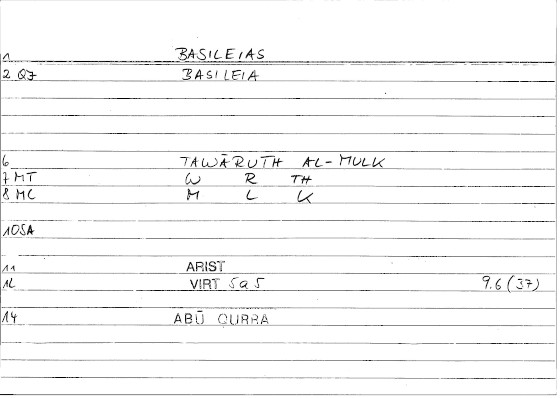 1 BASILEIAS
2 Q7 BASILEIA
6 TAWĀRUTH AL-MULK
7 MT W R TH
8 MC M L K
10SA
11 ARIST
12 VIRT 5a5 9.6 (37)
14 ABŪ QURRA